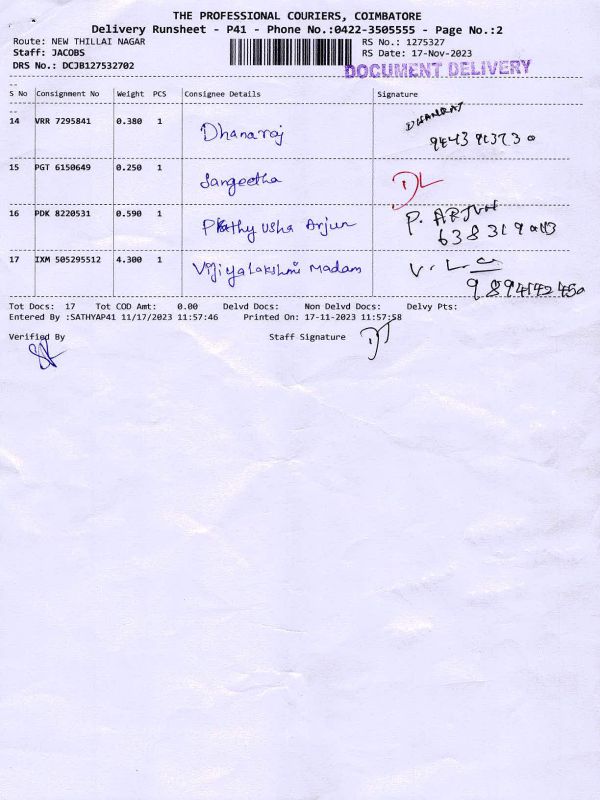 THE PROFESSIONAL COURIERS, COIMBATORE
Delivery Runsheet - P41 - Phone No.:0422-3505555 - Page No.:2
Route: NEW THILLAI NAGAR RS No.: 1275327
Staff: JACOBS RS Date: 17-Nov-2023
DRS No.: DCJB127532702 DOCUMENT DELIVERY
S No Consignment No Weight PCS Consignee Details Signature
14 VRR 7295841 0.380 1 Dhanaraj DHANRAJ
15 PGT 6150649 0.250 1 Sangeetha DL
16 PDK 8220531 0.590 1 Prathyusha Arjun P. ARJUN
17 IXM 505295512 4.300 1 Vijiyalakshmi Madam
9894142450
Tot Docs: 17 Tot COD Amt: 0.00 Delvd Docs: Non Delvd Docs: Delvy Pts:
Entered By :SATHYAP41 11/17/2023 11:57:46 Printed On: 17-11-2023 11:57:58
Verified By Staff Signature